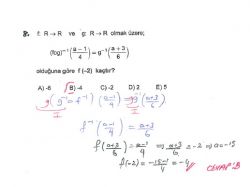 8. f: R → R ve g: R → R olmak üzere;
(fog)⁻¹ ((a-1)/4) = g⁻¹ ((a+3)/6)
olduğuna göre f (-2) kaçtır?
A) -6 B) -4 C) -2 D) 2 E) 5
g(g⁻¹ o f⁻¹) ((a-1)/4) = g g⁻¹ ((a+3)/6)
I I
f⁻¹ ((a-1)/4) = (a+3)/6
f((a+3)/6) = (a-1)/4 ⇒ (a+3)/6 = -2 ⇒ a = -15
f(-2) = (-15-1)/4 = -4 CEVAP: B